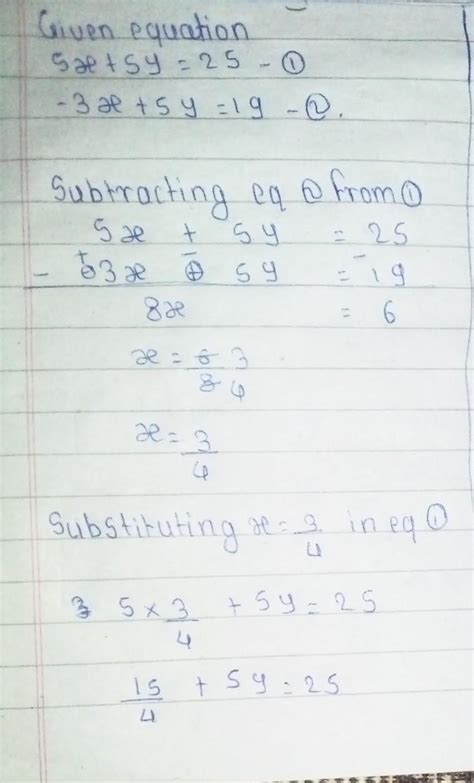 Given equation
5x + 5y = 25 - ①
-3x + 5y = 19 - ②.
Subtracting eq ② from ①
5x + 5y = 25
- 3x + 5y = 19
+ - -
8x = 6
x = 6/8 3/4
x = 3/4
Substituting x = 3/4 in eq ①
5 × 3/4 + 5y = 25
15/4 + 5y = 25